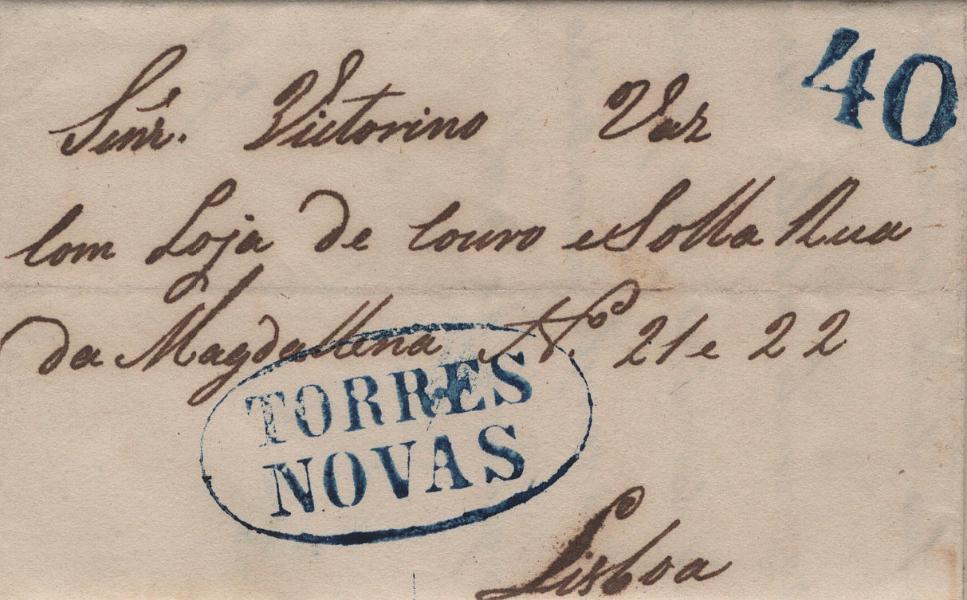 Senr. Victorino Vaz
40
Com Loja de Couro e Solla Rua
da Magdallena Nº 21 e 22
TORRES
NOVAS
Lisboa